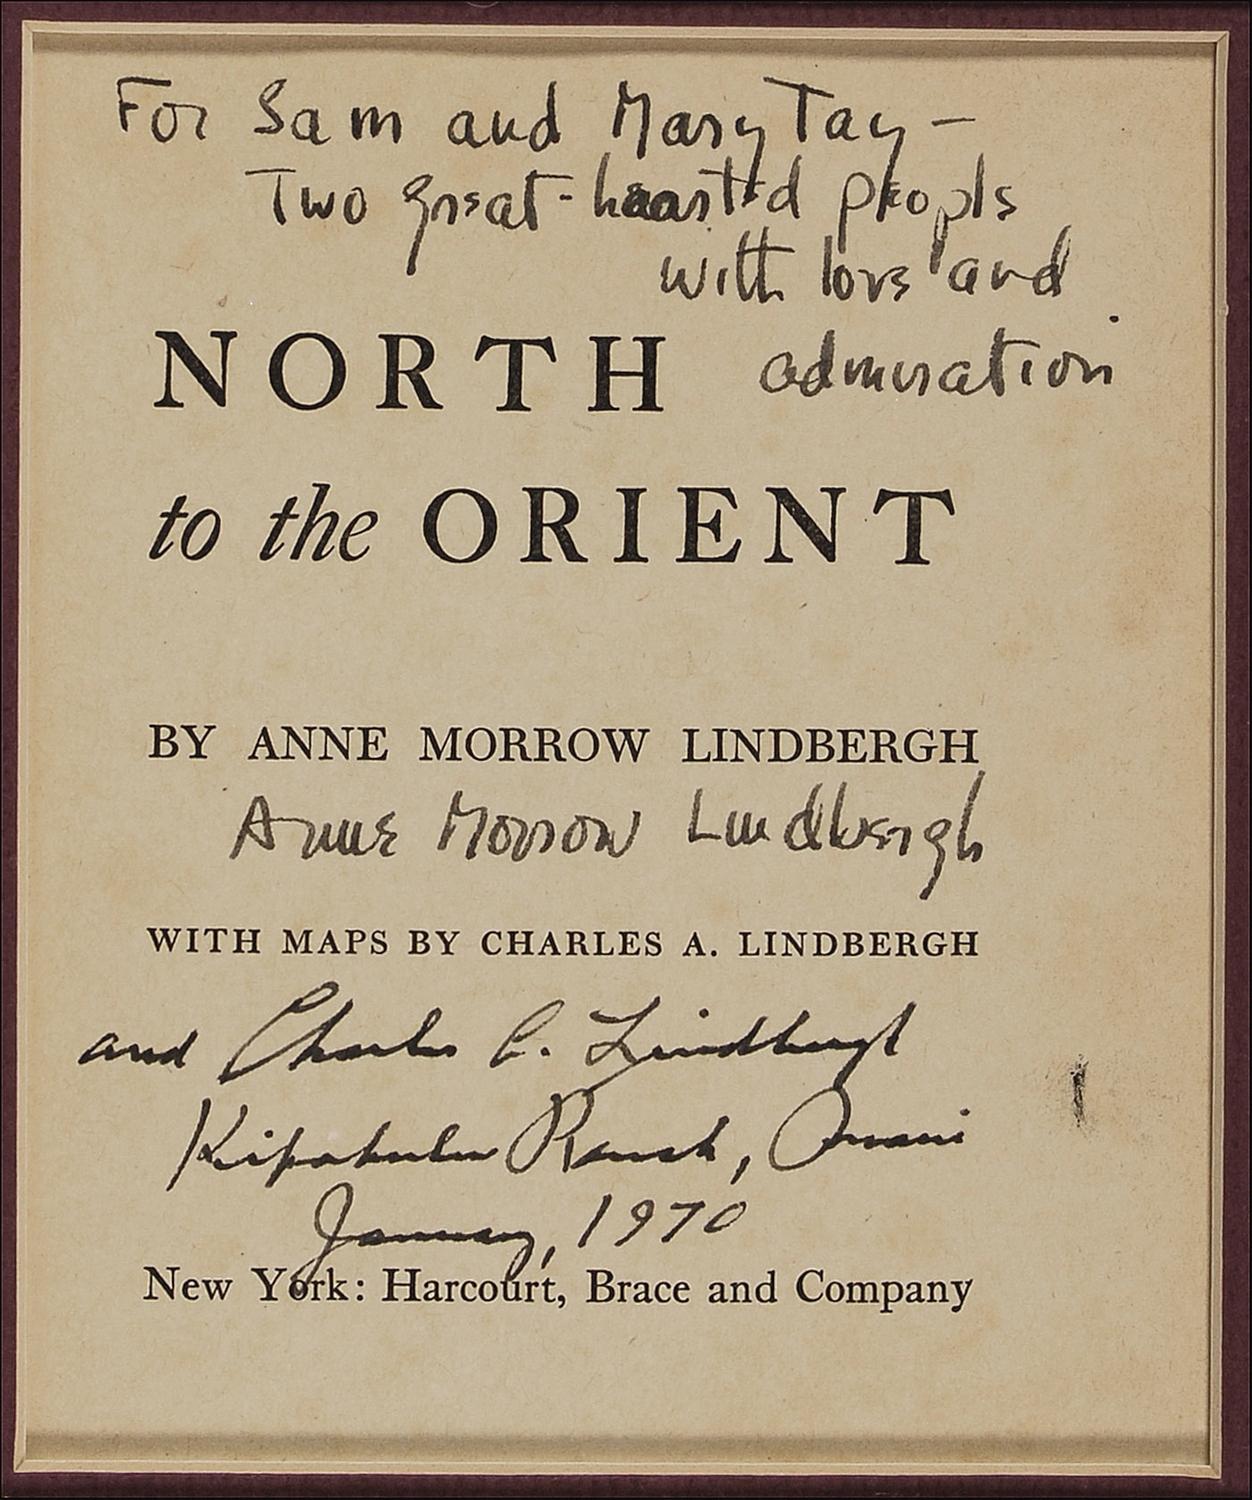 For Sam and Mary Tay —
Two great-hearted people
with love and
NORTH admiration
to the ORIENT
BY ANNE MORROW LINDBERGH
Anne Morrow Lindbergh
WITH MAPS BY CHARLES A. LINDBERGH
and Charles A. Lindbergh
Kipahulu Ranch, Maui
January, 1970
New York: Harcourt, Brace and Company